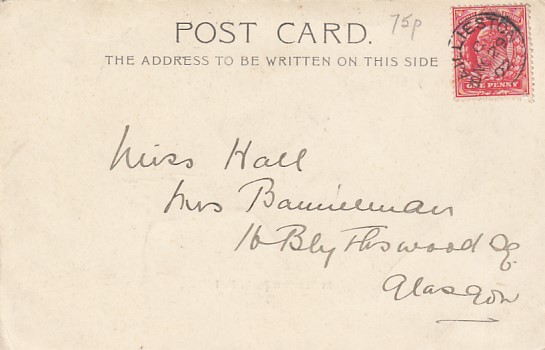 POST CARD.
75p
THE ADDRESS TO BE WRITTEN ON THIS SIDE
BAILLIESTON
ONE PENNY
Miss Hall
Mrs
16 Blythswood Sq
Glasgow